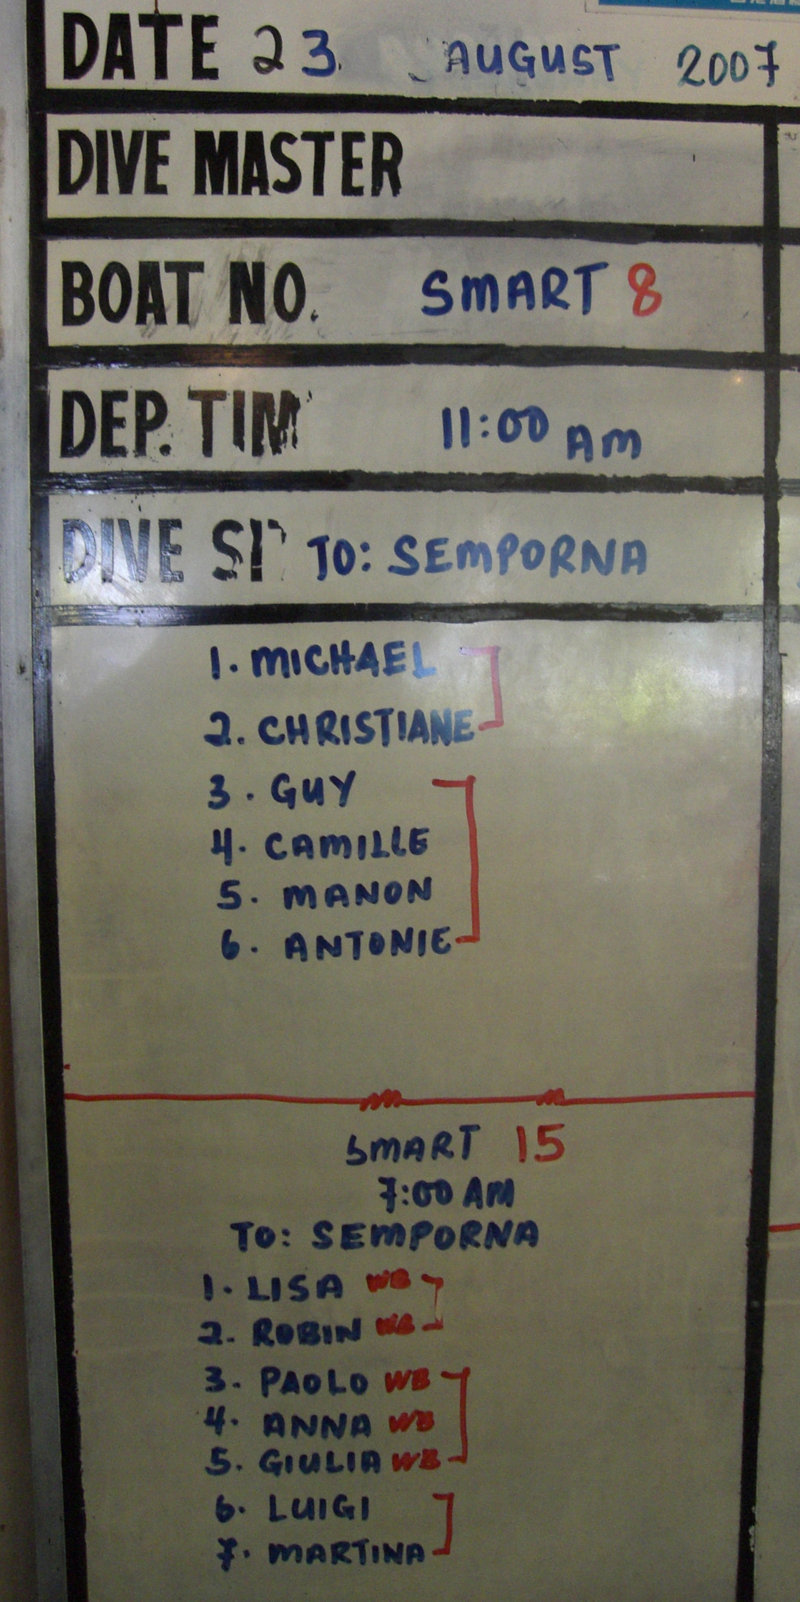 DATE 23 AUGUST 2007
DIVE MASTER
BOAT NO. SMART 8
DEP. TIM 11:00 AM
DIVE SI TO: SEMPORNA
1. MICHAEL
2. CHRISTIANE
3. GUY
4. CAMILLE
5. MANON
6. ANTONIE
SMART 15
7:00 AM
TO: SEMPORNA
1. LISA WB
2. ROBIN WB
3. PAOLO WB
4. ANNA WB
5. GIULIA WB
6. LUIGI
7. MARTINA